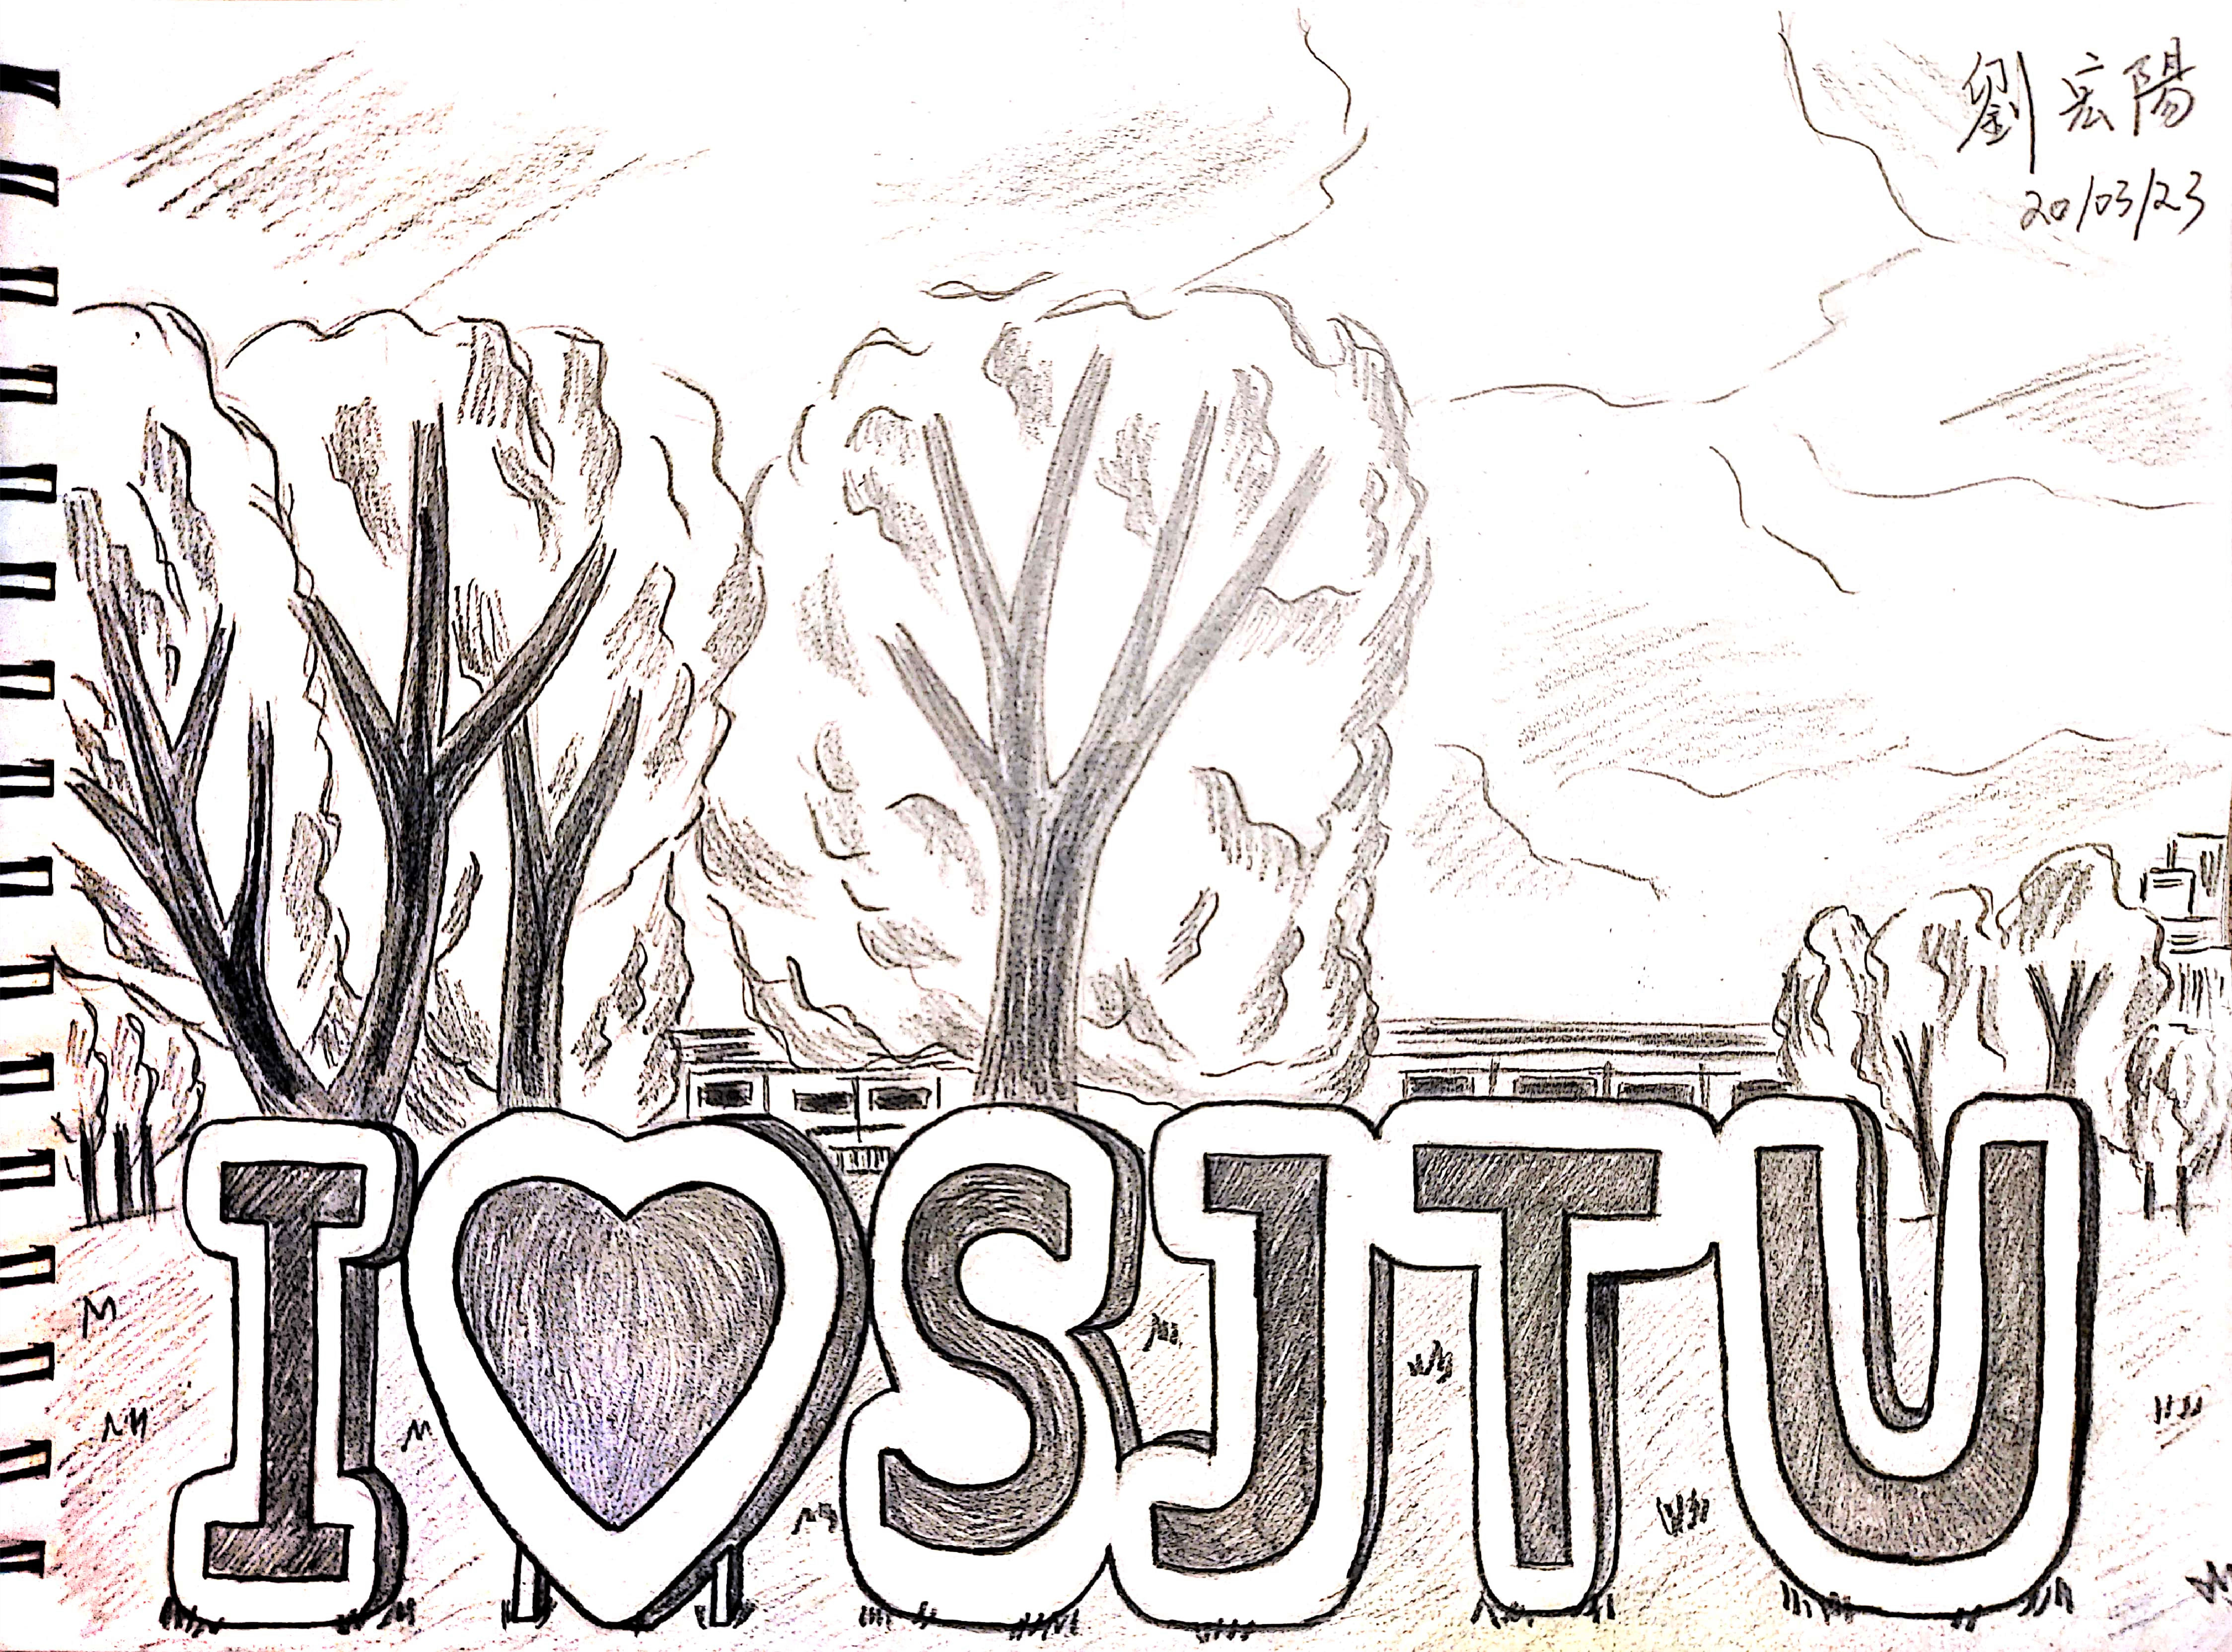 劉宏陽
20/03/23
I ♥ SJTU